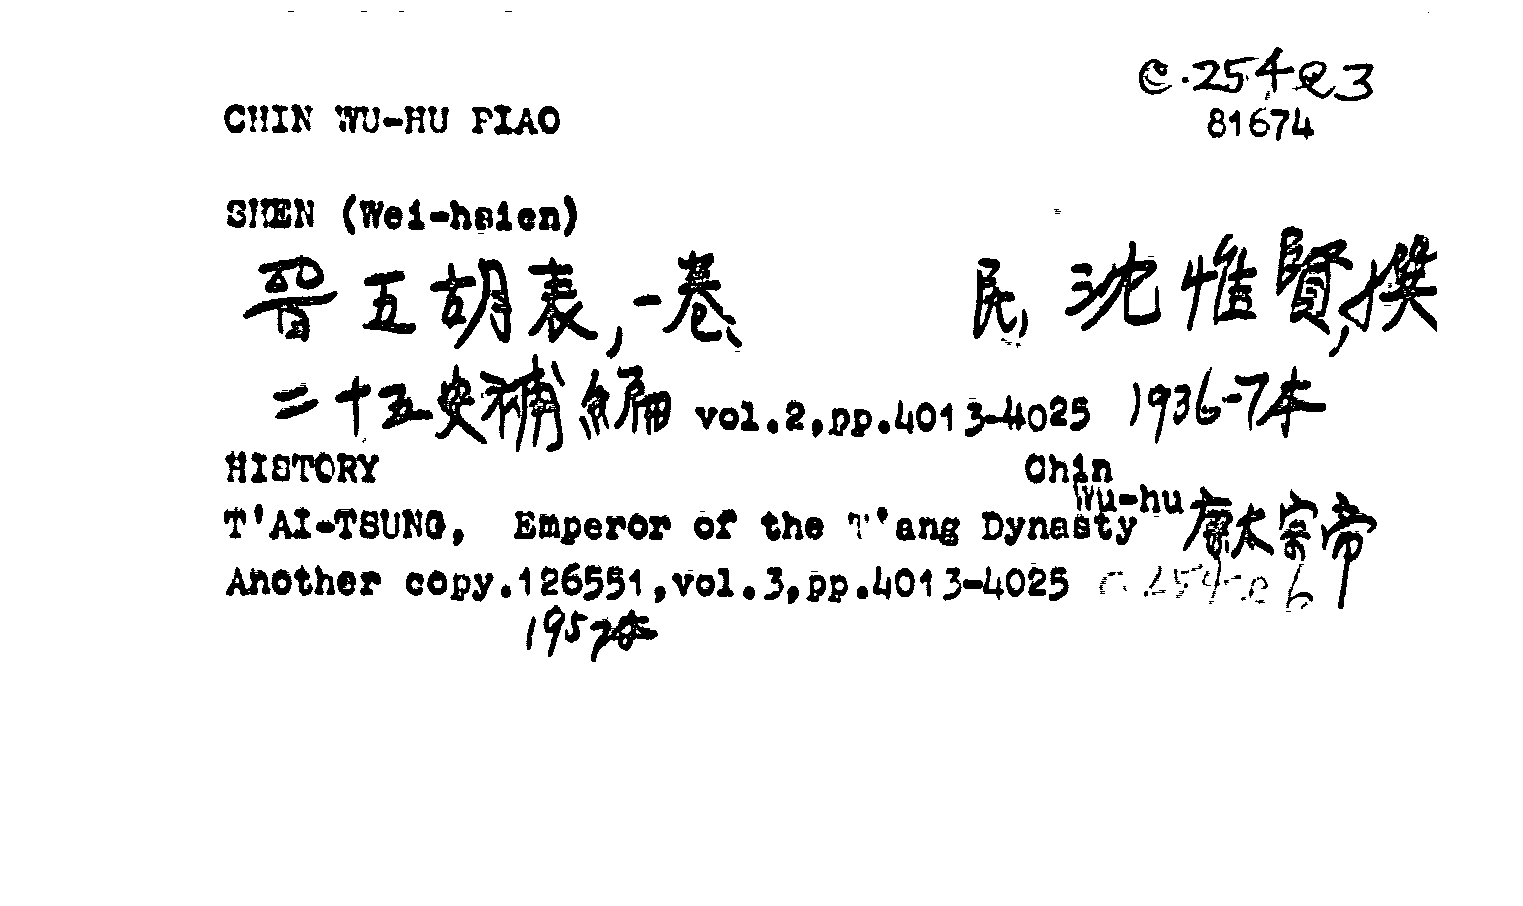 C.254e3
CHIN WU-HU PIAO 81674
SHEN (Wei-hsien)
晉五胡表,一卷、 民, 沈惟賢,撰
二十五史補編 vol.2,pp.4013-4025 1936-7本
HISTORY Chin
Wu-hu
T'AI-TSUNG, Emperor of the T'ang Dynasty 唐太宗帝
Another copy.126551,vol.3,pp.4013-4025 C.254e6
1957本